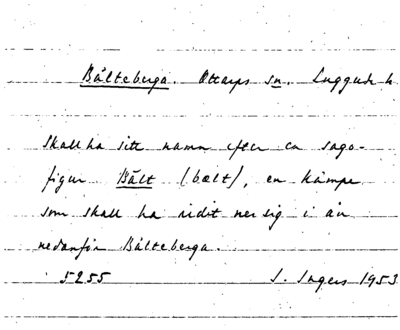 Bålteberga. Ottarps sn. Luggude h
Skall ha sitt namn efter en sago-
figur Bält (bælt), en kämpe
som skall ha ridit ner sig i ån
nedanför Bålteberga.
5255 S. Ingers 1953